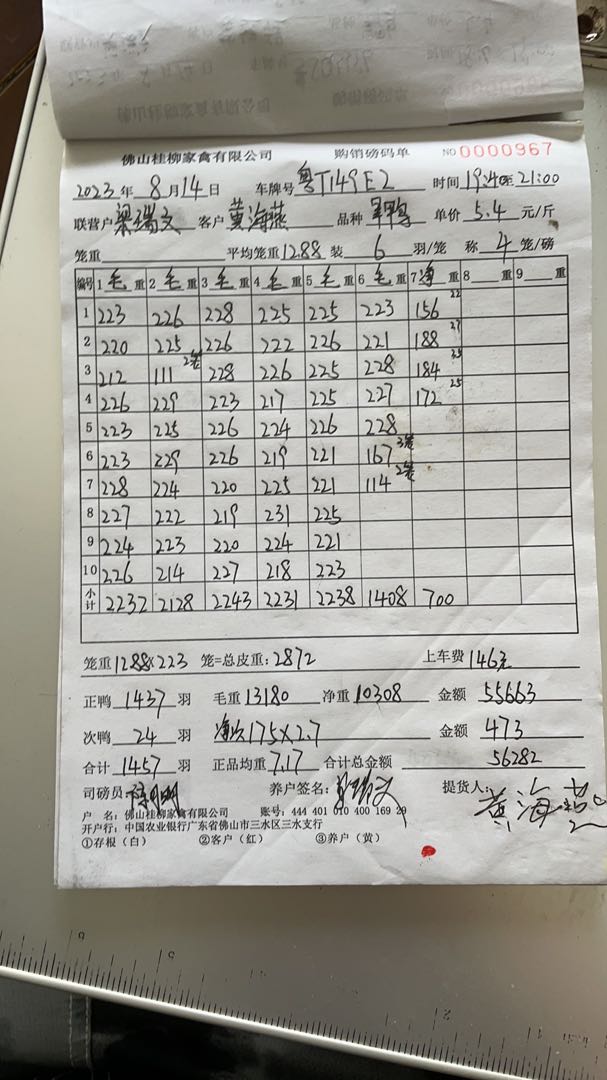 佛山桂柳家禽有限公司 购销磅码单 NO 0000967
2023年8月14日 车牌号 粤T149E2 时间19:40至21:00
联营户 梁瑞文 客户 黄海燕 品种 单价 5.4 元/斤
笼重 平均笼重12.88 装 6 羽/笼 称 4 笼/磅
编号 1 毛 重 2 毛 重 3 毛 重 4 毛 重 5 毛 重 6 毛 重 7 净 重 8 重 9 重
1 223 226 228 225 225 223 156 22
2 220 225 226 222 226 221 188 27
3 212 111 2笼 228 226 225 228 184
4 226 229 223 217 225 227 172 25
5 223 225 226 224 226 228
6 223 229 226 219 221 167 3笼
7 228 224 220 225 221 114 2笼
8 227 222 219 231 225
9 224 223 220 224 221
10 226 214 227 218 223
小计 2232 2128 2243 2231 2238 1408 700
笼重 12.88×223 笼=总皮重: 2872 上车费 146元
正鸭 1437 羽 毛重 13180 净重 10308 金额 55663
次鸭 24 羽 175×2.7 金额 473
合计 1457 羽 正品均重 7.17 合计总金额 56282
司磅员 养户签名: 梁瑞文 提货人: 黄海燕
户 名: 佛山桂柳家禽有限公司 账号: 444 401 010 400 169 29
开户行: 中国农业银行广东省佛山市三水区三水支行
①存根（白） ②客户（红） ③养户（黄）